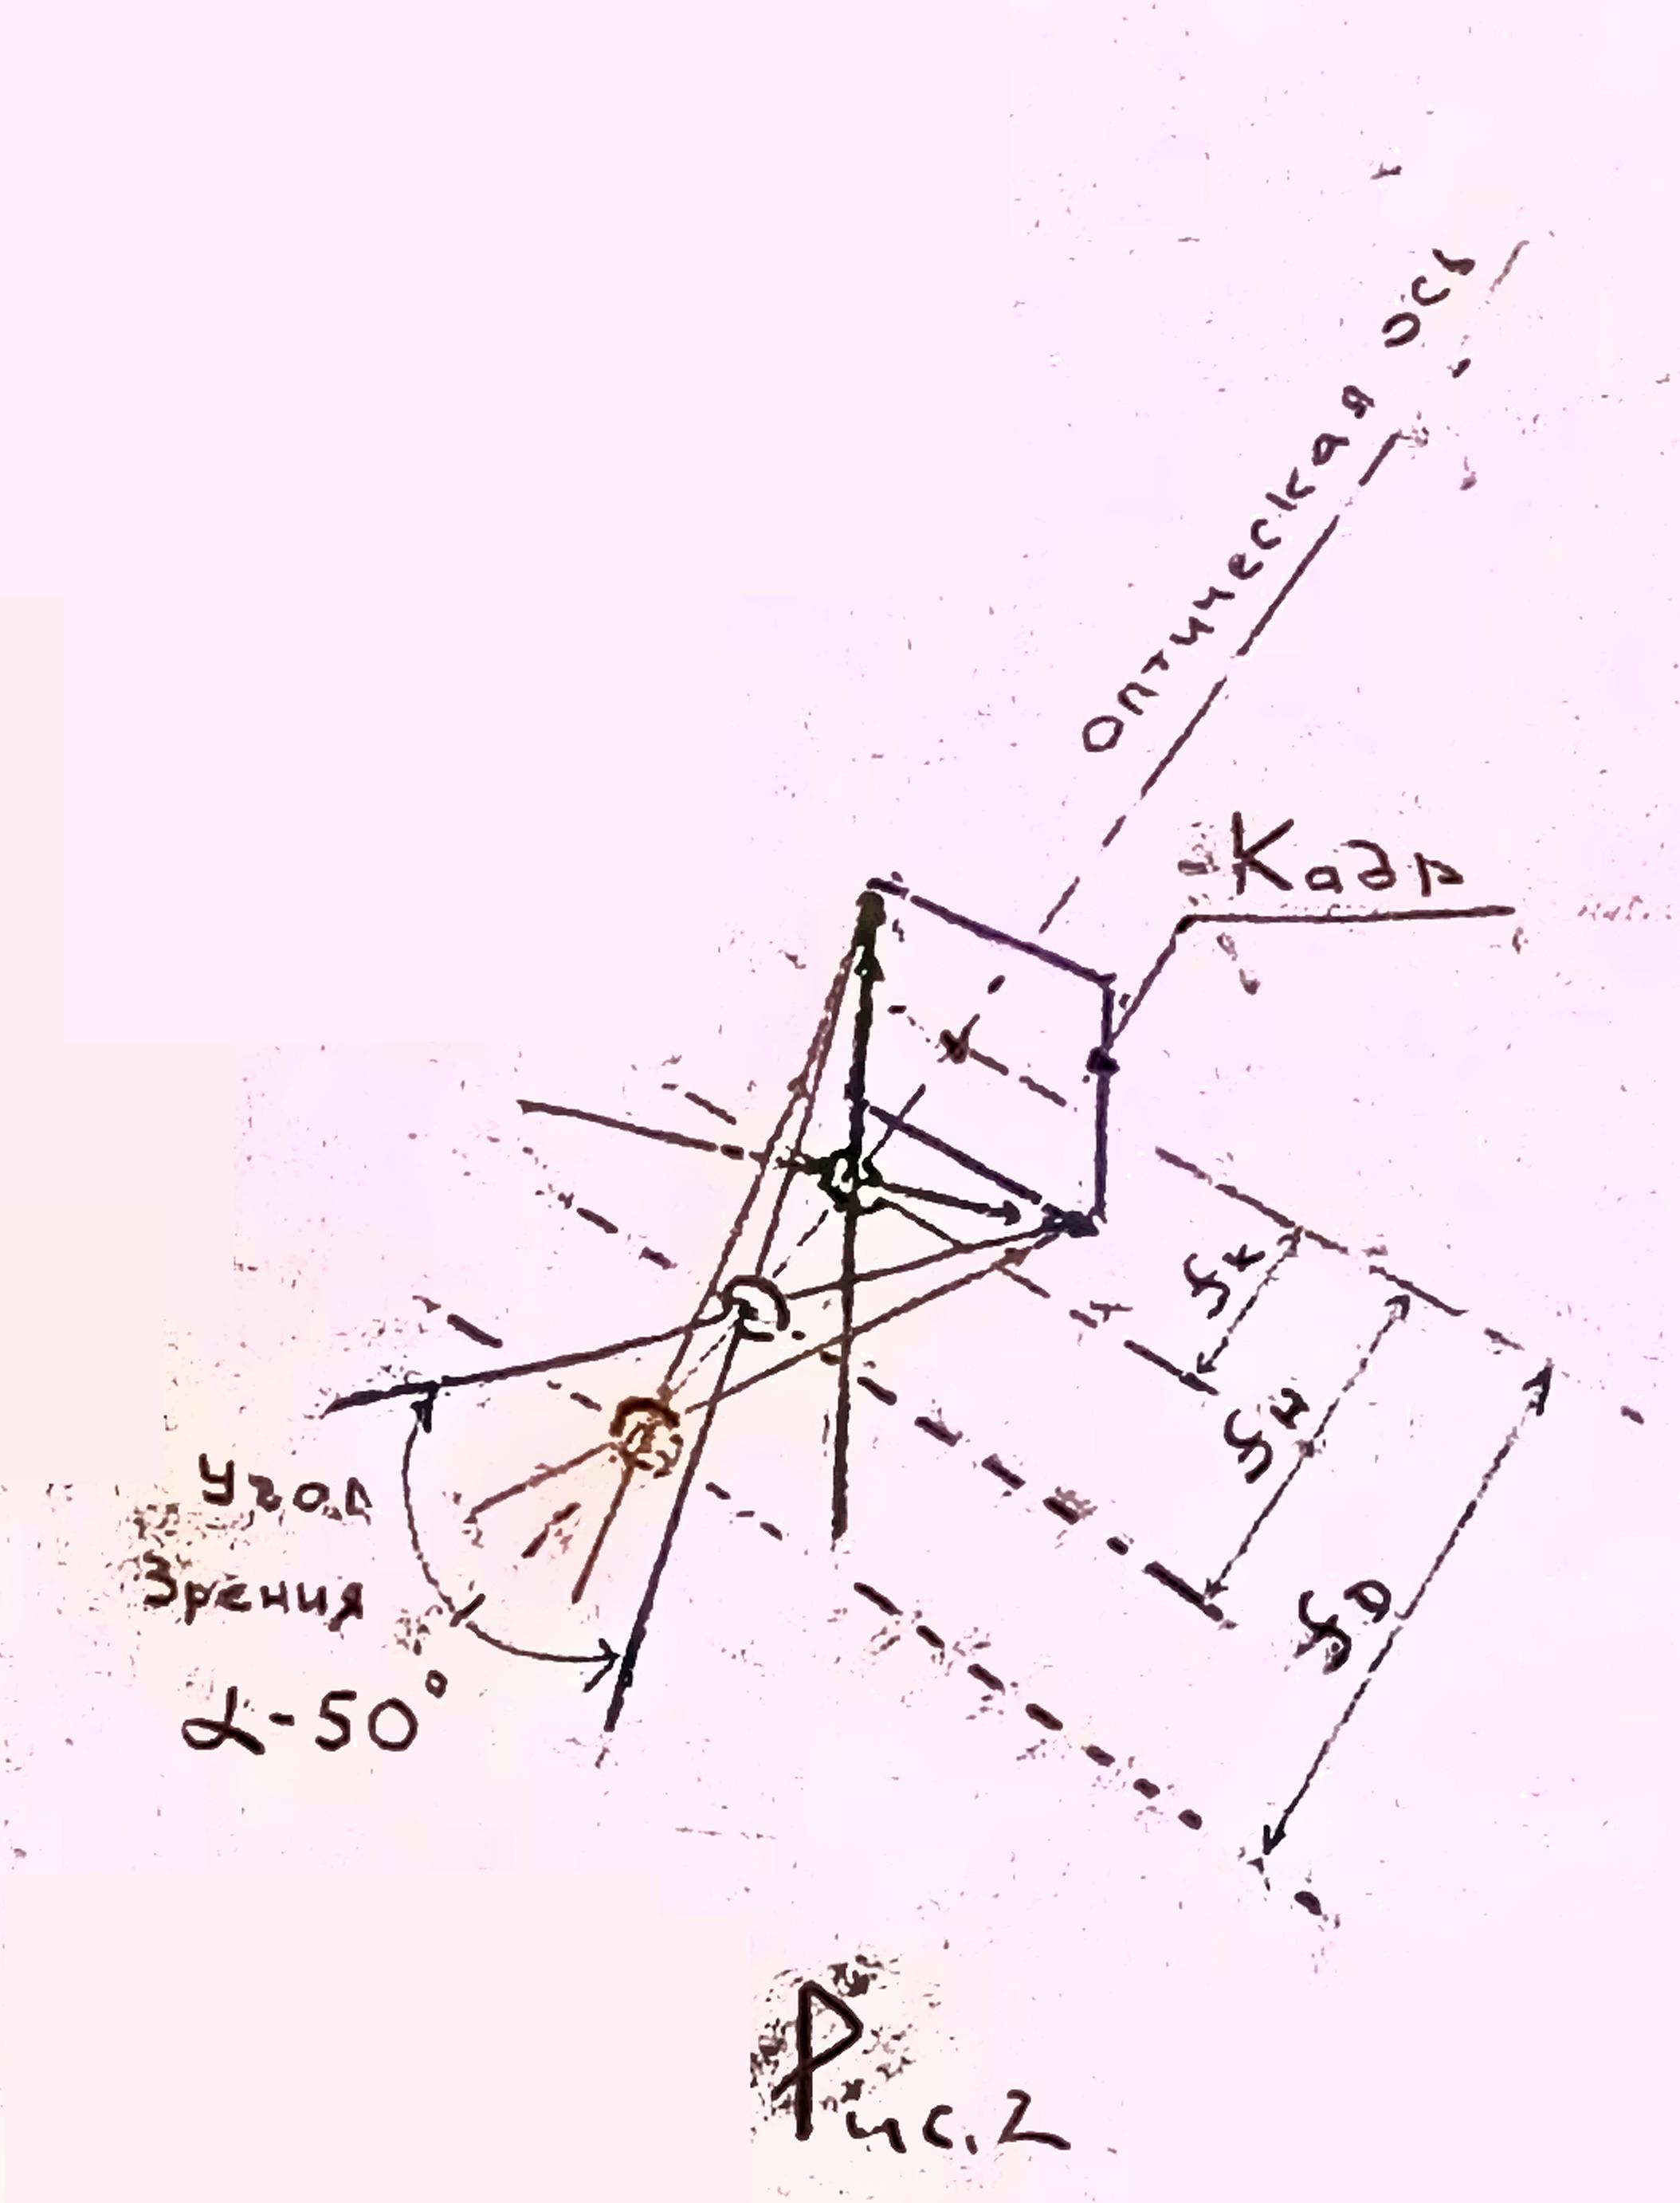 оптическая ось
Кадр
fк
fн
fд
Угол
Зрения
α-50°
Рис.2